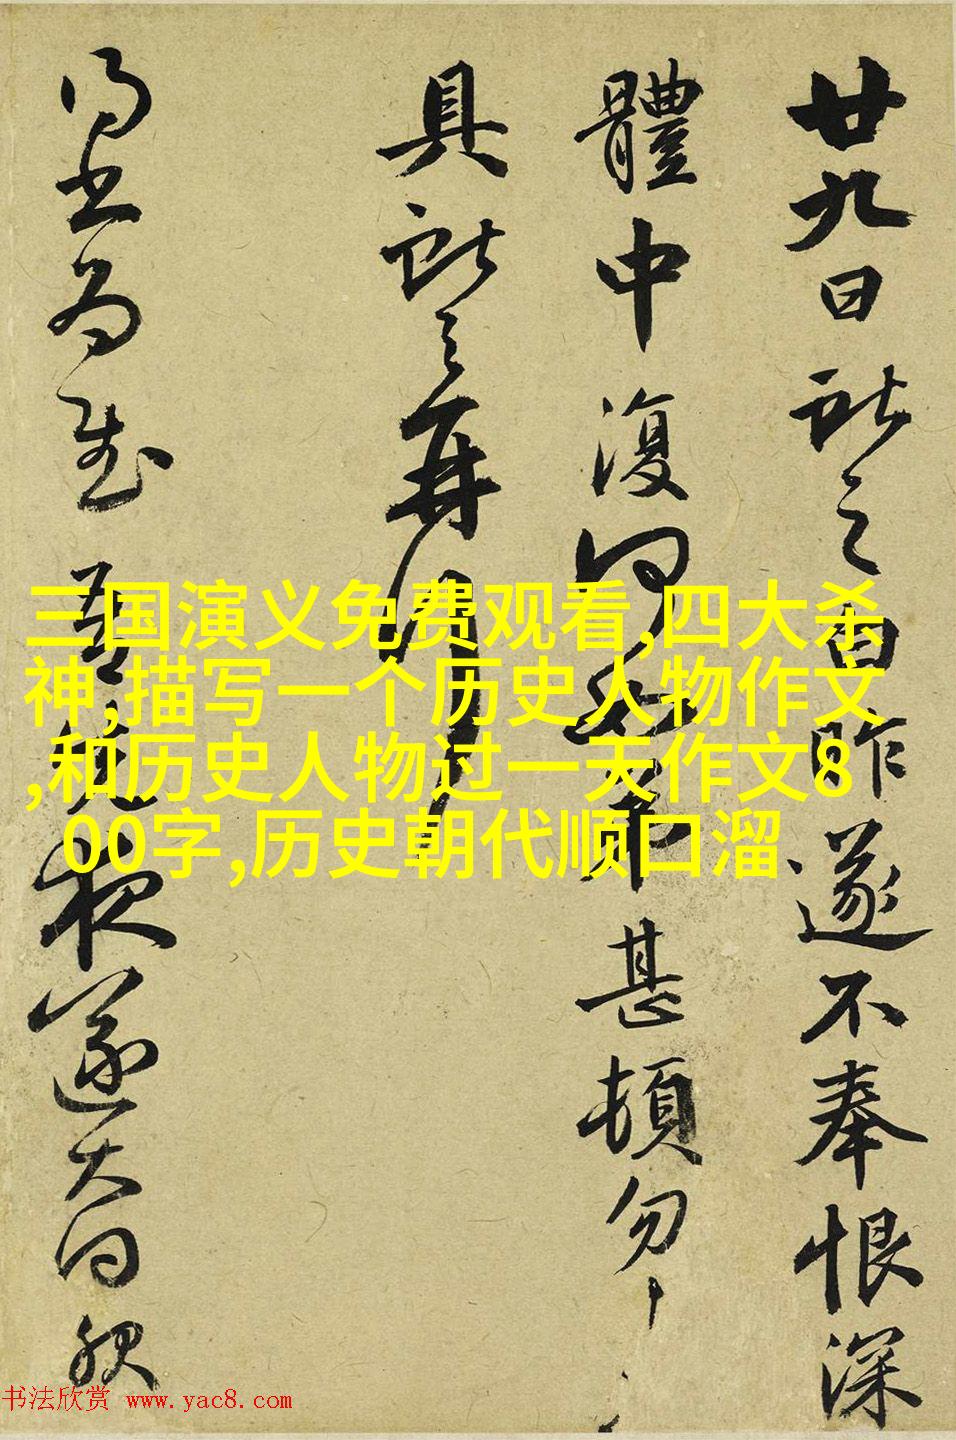 廿九日獻之白昨遂不奉恨深
體中復何如弟甚頓勿
具獻之再
得書為慰吾
夜遂大得服
三国演义免费观看,四大杀
神,描写一个历史人物作文
,和历史人物过一天作文8
00字,历史朝代顺口溜
书法欣赏 www.yac8.com